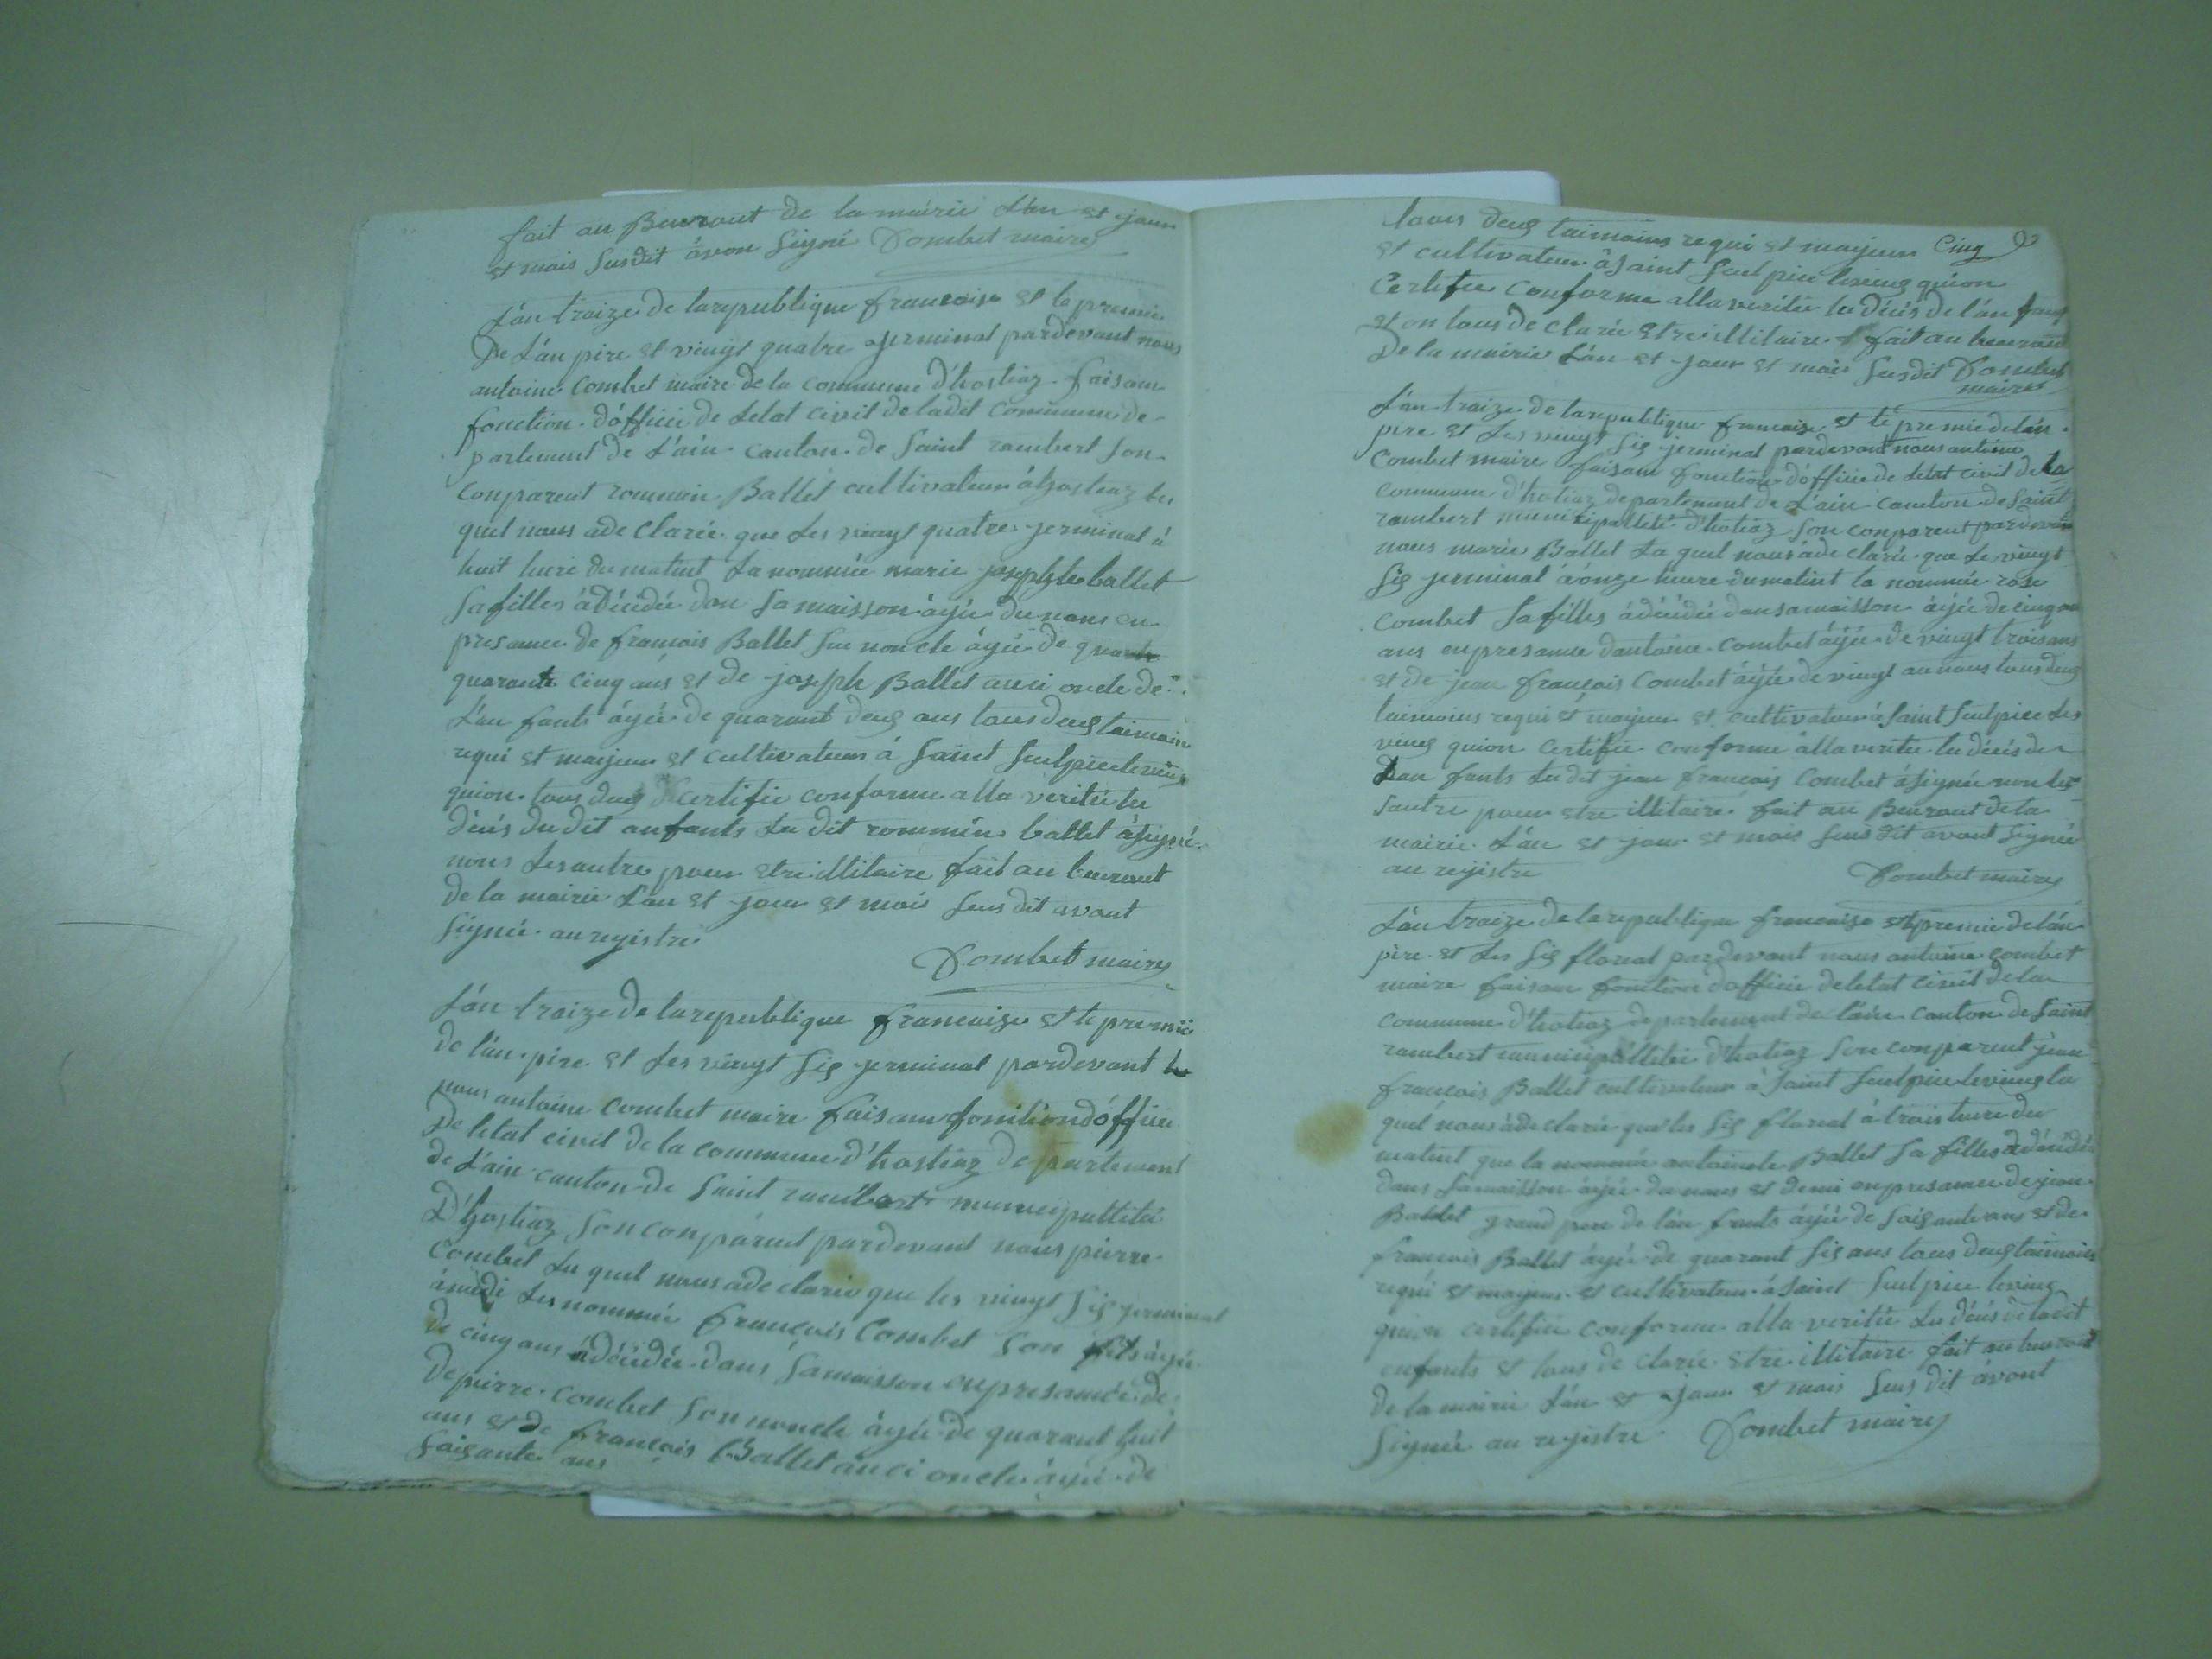 fait au Beuraut de la mairie L'an et jour
et mais susdit avon signé Combet maire
L'an traize de la republique francaise et le premie
De L'an pire et vingt quatre germinal pardevant nous
antoine Combet maire de la commune d'hostiaz faisam
fonction d'officie de Letat civit de ladit commune de
partement de L'ain canton de Saint rambert son
conparent rommain Ballet cultivateur a hostiaz le
quel nous a de clarée que Les vingt quatre germinal à
huit heure du matint La nommée marie josephte ballet
sa filles a déudée dan sa maisson agée du nans en
presamce de francois Ballet sue noncle agée de quarante
quarante cinq ans et de joseph Ballet auci oncle de
L'an fants agée de quarant deus ans tous deus taimoin
requi et majeur et cultivateur à Saint Seulpice levieus
quion tous deus certifie conforme alla veritée lu
déces du dit anfants Lu dit rommain ballet a signé
nons Les autre pour etre illitaire fait au beuraut
de la mairie L'an et jour et mois sus dit avont
signée au registre
Combet maire
L'an traize de la republique francaize et le premie
de l'an pire et Les vingt sis germinal pardevant
nous antoine Combet maire faisam fonition d'officie
De letat civil de la commune d'hostiaz departement
de L'ain canton de Saint rambert municipallité
D'hostiaz son conparent pardevant nous pierre
Combet Lu quel nous a de clarée que les vingt sis germinal
a midi Les nommée Francois Combet son fils agée
de cinq ans a déudée dans sa maisson en presamce de
De pierre Combet son noncle agée de quarant huit
ans et de francois Ballet auci oncle agée de
Saisante ans
tous deus taimoins requi et majeur Cinq
et cultivateur a Saint Seulpice levieus quion
Certifie conforme alla veritée lu déces de l'an fants
et on tous de clarée etre illitaire fait au beuraut
De la mairie L'an et jour et mois susdit Combet
maire
L'an traize de la republique francaize et le premie de l'an
pire et Les vingt sis germinal pardevant nous antoine
Combet maire faisam fonction d'officie de letat civit de la
commune d'hotiaz departement de L'ain camton de saint
rambert municipallité d'hotiaz son conparent pardevant
nous marie Ballet La quel nous a de clarée que Le vingt
sis germinal a onze heure du matint la nommée rose
Combet sa filles a déudée dan sa maisson agée de cinq
ans en presamce dantoine Combet agée de vingt trois ans
et de jean francois Combet agée de vingt an nous tous deus
taimoins requi et majeur et cultivateur a saint Seulpice Les
vieus quion certifie conforme alla veritée lu déces de
L'an fants Lu dit jean francois Combet a signée non les
sautre pour etre illitaire fait au Beuraut de la
mairie L'an et jour et mois sus dit avont signée
au registre
Combet maire
L'an traize de la republique francaise et premie de l'an
pire et Les sis floreal pardevant nous antoine combet
maire faisam fonction d'officie de letat civit de la
commune d'hotiaz departement de l'ain canton de saint
rambert municipallitée d'hotiaz son conparent jean
francois Ballet cultivateur à Saint Seulpice levieus lu
quel nous a de clarée que les sis floreal à trois heure du
matint que la nommée antoinete Ballet sa filles a déudée
dans sa maisson agée du nans et demi en presamce de jean
Ballet grand pere de l'an fants agée de saisante ans et de
francois Ballet agée de quarant sis ans tous deus taimoins
requi et majeur et cultivateur a Saint Seulpice levieus
quion certifie conforme alla veritée Lu déces de ladit
enfants et tous de clarée etre illitaire fait au beuraut
de la mairie L'an et jour et mais sus dit avont
signée au registre Combet maire